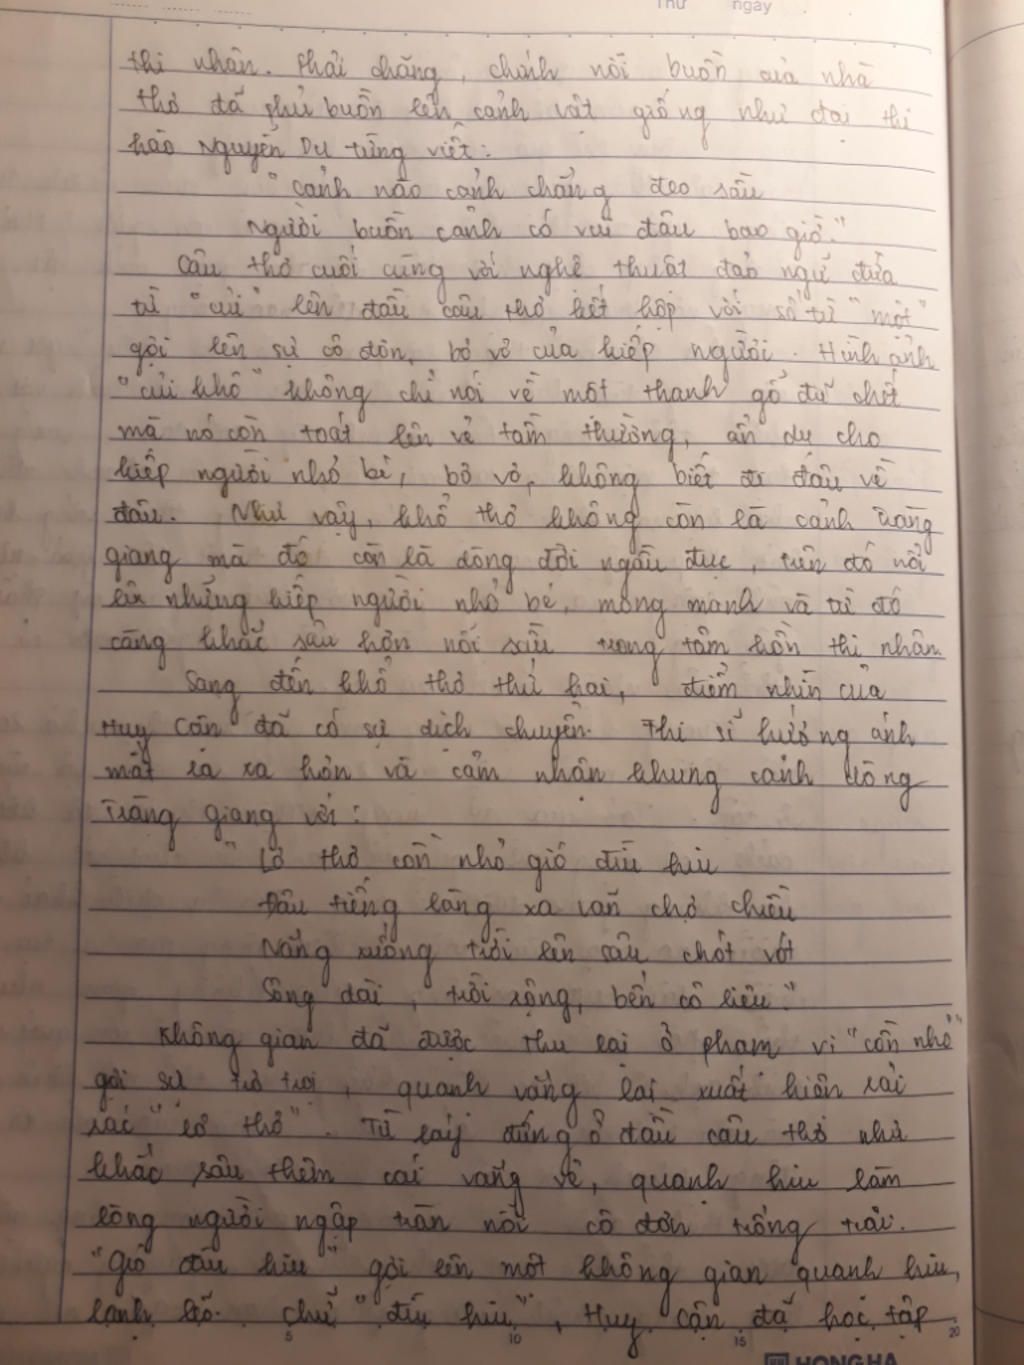 Thứ ngày
thi nhân. Phải chăng, chính nỗi buồn của nhà
thơ đã phủ buồn lên cảnh vật giống như đại thi
hào Nguyễn Du từng viết:
"Cảnh nào cảnh chẳng đeo sầu
Người buồn cảnh có vui đâu bao giờ."
Câu thơ cuối cùng với nghệ thuật đảo ngữ đưa
từ "củi" lên đầu câu thơ kết hợp với số từ "một"
gợi lên sự cô đơn, bơ vơ của kiếp người. Hình ảnh
"củi khô" không chỉ nói về một thanh gỗ đã chết
mà nó còn toát lên vẻ tầm thường, ẩn dụ cho
kiếp người nhỏ bé, bơ vơ, không biết đi đâu về
đâu. Như vậy, khổ thơ không còn là cảnh tràng
giang mà đó còn là dòng đời ngầu đục, trên đó nổi
lên những kiếp người nhỏ bé, mỏng manh và từ đó
càng khắc sâu hơn nỗi sầu trong tâm hồn thi nhân.
Sang đến khổ thơ thứ hai, điểm nhìn của
Huy Cận đã có sự dịch chuyển. Thi sĩ hướng ánh
mắt ra xa hơn và cảm nhận khung cảnh trong
Tràng giang với:
"Lơ thơ cồn nhỏ gió đìu hiu
Đâu tiếng làng xa vãn chợ chiều
Nắng xuống trời lên sâu chót vót
Sông dài, trời rộng, bến cô liêu"
Không gian đã được thu lại ở phạm vi "cồn nhỏ"
gợi sự trơ trọi, quanh vắng lại xuất hiện rải
rác "lơ thơ". Từ láy đứng ở đầu câu thơ như
khắc sâu thêm cái vắng vẻ, quạnh hiu làm
lòng người ngập tràn nỗi cô đơn trống trải.
"Gió đìu hiu" gợi lên một không gian quạnh hiu,
lạnh lẽo. Chữ "đìu hiu", Huy Cận đã học tập
5 10 15 20
HONG HA